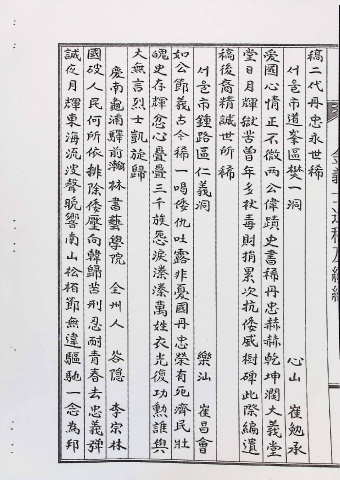 稿二代丹忠永世稀
서울市道峯區樊一洞 心山 崔勉承
愛國心情正不微兩公偉蹟史書稀丹忠赫赫乾坤濶大義堂
堂日月輝獄苦曾年多杖毒財捐累次抗倭威樹碑此際編遺
稿後裔精誠世所稀
서울市鍾路區仁義洞 樂汕 崔昌會
如公節義古今稀一唱倭仇吐露非憂國丹忠榮有死濟民壯
魄史存輝忿心疊疊三千族怨淚溱溱萬姓衣光復功勲誰與
大無言烈士凱旋歸
慶南龜浦驛前瀚林書藝學院 全州人 谷隱 李宗林
國破人民何所依排除倭壓向韓歸苦刑忍耐青春去忠義彈
誠夜月輝東海流波聲晩響南山松栢節無違驅馳一念為邦